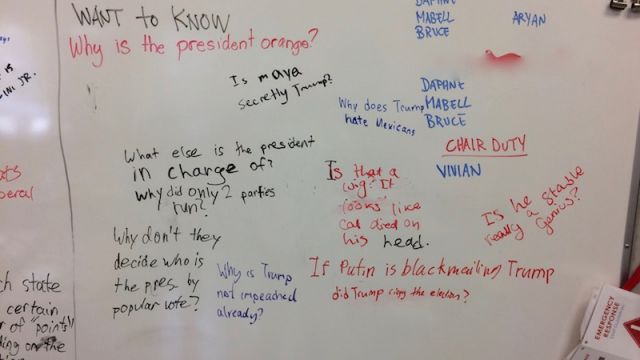 WANT to KNOW
Why is the president orange?
Is maya
secretly Trump?
DAPHNE
MABELL
BRUCE
ARYAN
DAPHNE
MABELL
BRUCE
Why does Trump
hate Mexicans
CHAIR DUTY
VIVIAN
What else is the president
in change of?
why did only 2 parties
run?
Is that a
wig? It
looks like
cat died on
his head.
Is he
really a stable
Genius?
Why don't they
decide who is
the pres. by
popular vote?
Why is Trump
not impeached
already?
If Putin is blackmailing Trump
did Trump the election?
JR.
eral
ch state
certain
r of "points"
on the
EMERGENCY
RESPONSE